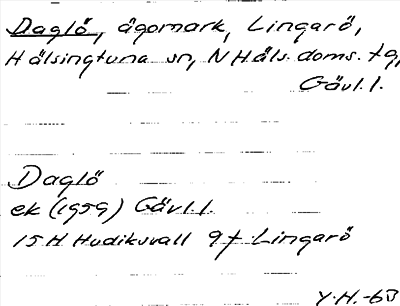 Daglö, ägomark, Lingarö,
Hälsingtuna sn, N Häls. doms. tg,
Gävl. l.
Daglö
ek (1959) Gävl. l.
15H Hudiksvall 9f Lingarö
Y.H. -63